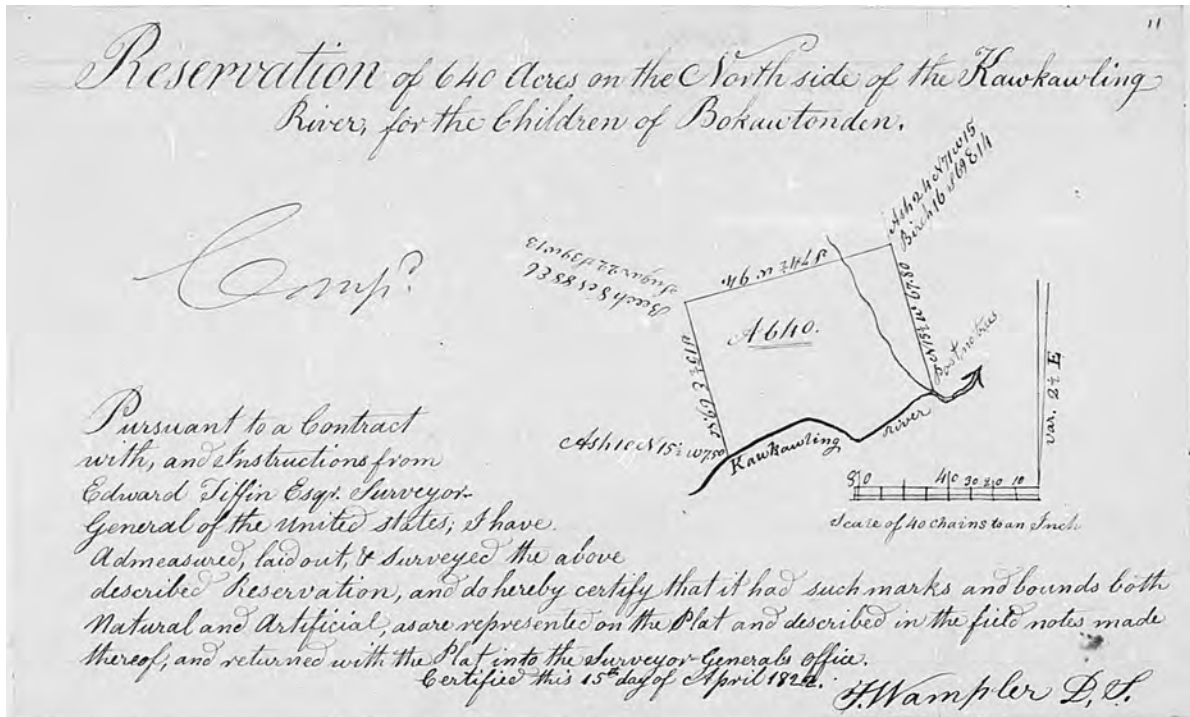 11
Reservation of 640 Acres on the North side of the Kawkawling
River, for the Children of Bokawtonden.
Comp.d
Ash 24 N 71 W 15
Birch 16 S 69 E 14
S 74½ W. 94.
A 640.
N 15½ W 67.80
Post, no trees
Kawkawling river
var. 2½ E
80 40 30 20 10
Scale of 40 chains to an Inch
Pursuant to a Contract
with, and Instructions from
Edward Tiffin Esqr. Surveyor-
General of the United States; I have
Admeasured, laid out, & Surveyed the above
described Reservation, and do hereby certify that it had such marks and bounds both
Natural and Artificial, as are represented on the Plat and described in the field notes made
thereof, and returned with the Plat into the Surveyor Generals office.
Certified this 15th day of April 1822.
J. Wampler D, S.